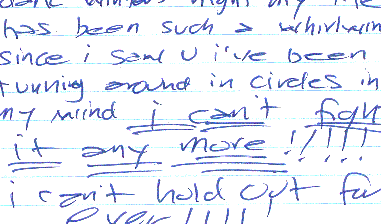 right my life
has been such a whirlwin
since i saw U i've been
running around in circles in
my mind i can't figh
it any more !!!!!
i can't hold out for
ever !!!!